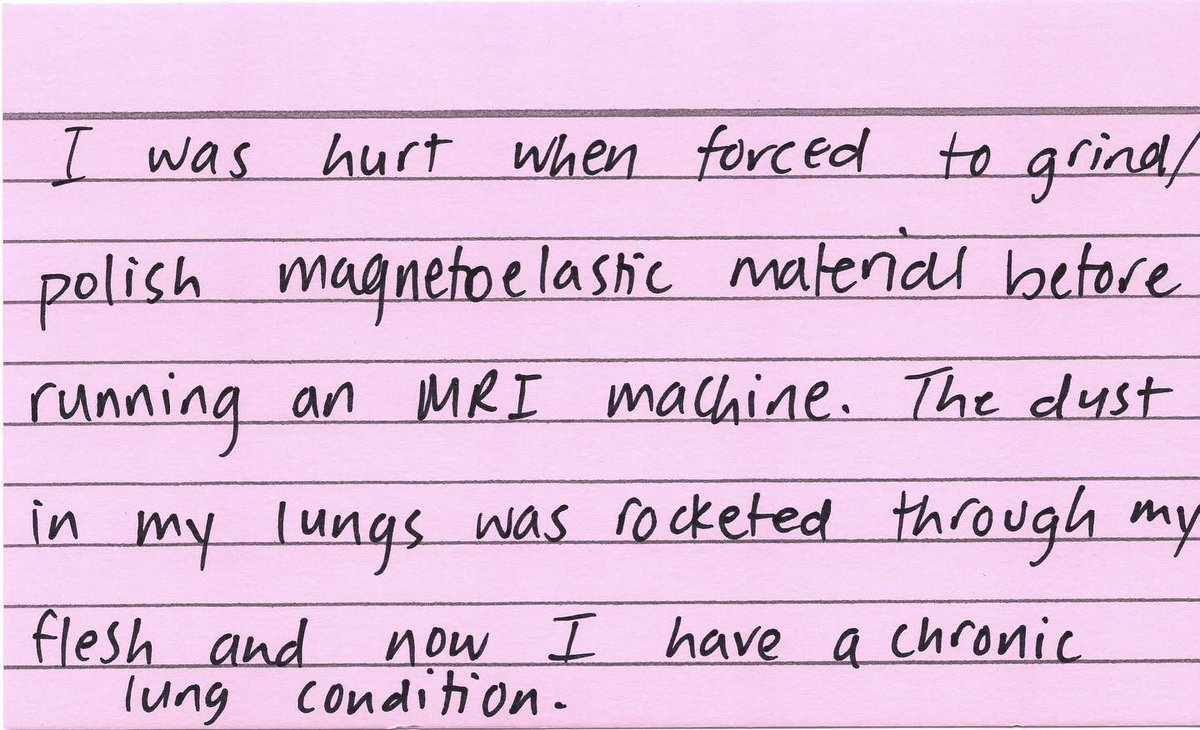 I was hurt when forced to grind/
polish magnetoelastic material before
running an MRI machine. The dust
in my lungs was rocketed through my
flesh and now I have a chronic
lung condition.